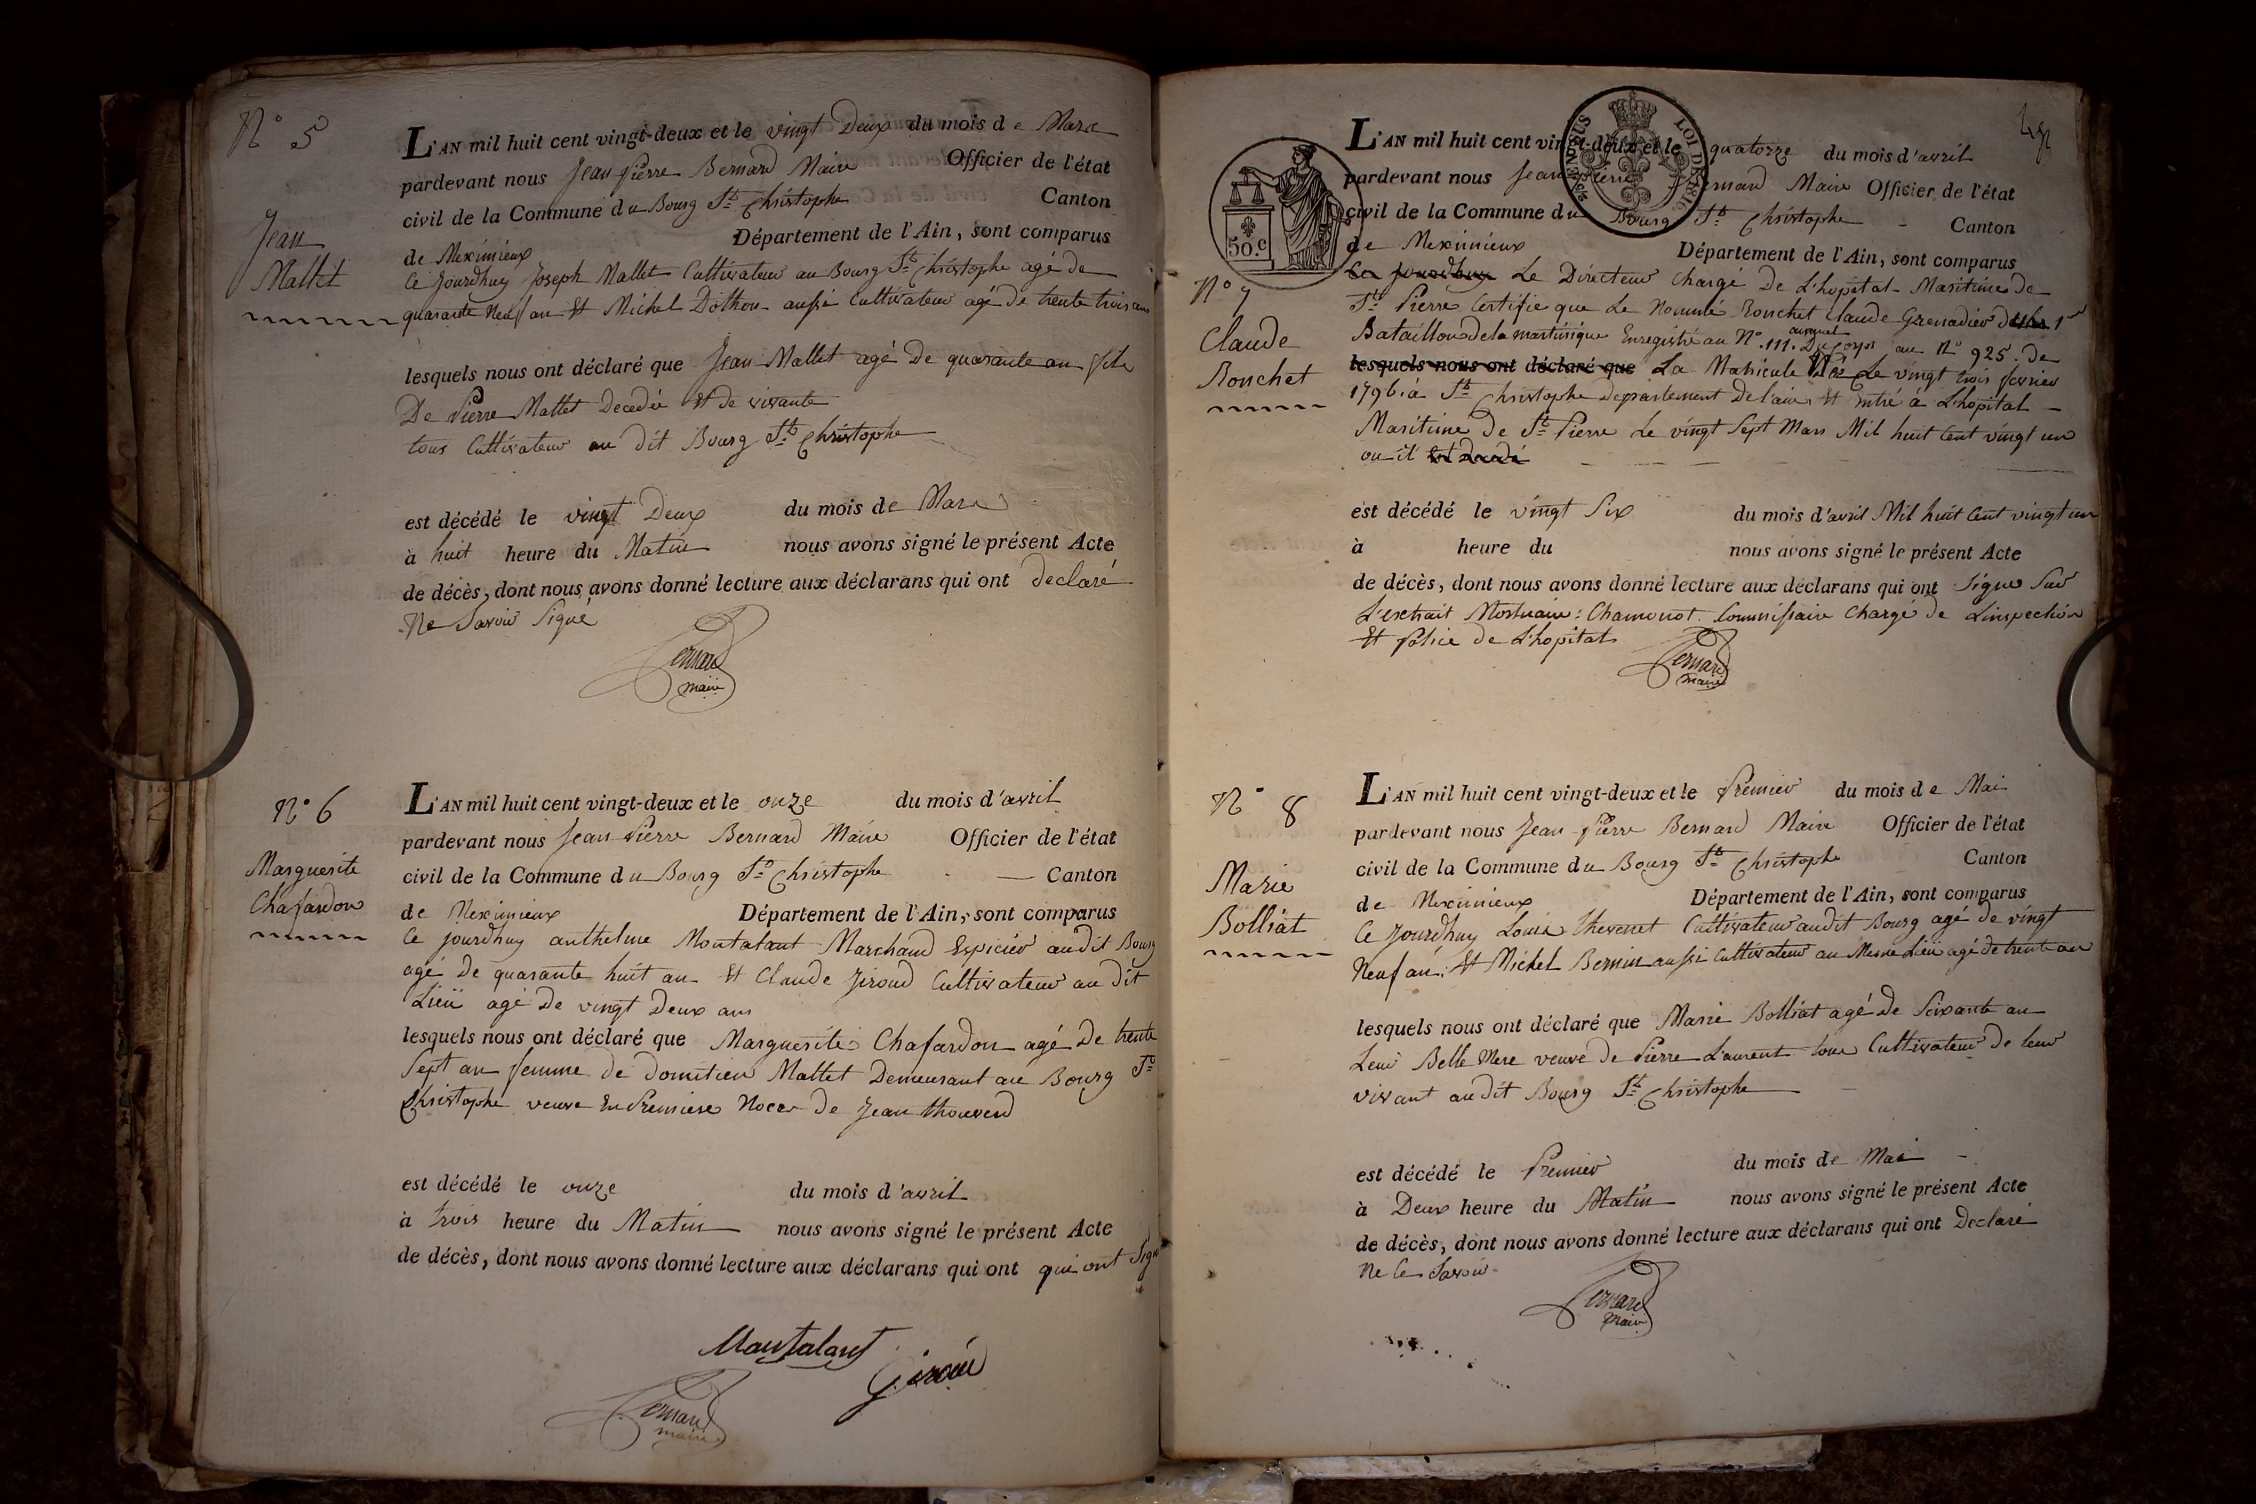 N° 5
Jean
Mallet
L'AN mil huit cent vingt-deux et le vingt Deux du mois de Mars
pardevant nous Jean Pierre Bernard Maire Officier de l'état
civil de la Commune du Bourg St Christophe Canton
de Meximieux Département de l'Ain, sont comparus
Ce Jourdhuy Joseph Mallet Cultivateur au Bourg St Christophe agé de
quarante Neuf an Et Michel Dothon aussi Cultivateur agé de trente trois ans
lesquels nous ont déclaré que Jean Mallet agé De quarante an fils
De Pierre Mallet Decedée Et de vivante
tous Cultivateur au dit Bourg St Christophe
est décédé le vingt Deux du mois de Mars
à huit heure du Matin nous avons signé le présent Acte
de décès, dont nous avons donné lecture aux déclarans qui ont declaré
Ne Savoir Signé
Bernard
maire
N° 6
Marguerite
Chafardon
L'AN mil huit cent vingt-deux et le onze du mois d'avril
pardevant nous Jean Pierre Bernard Maire Officier de l'état
civil de la Commune du Bourg St Christophe Canton
de Meximieux Département de l'Ain, sont comparus
Ce jourdhuy anthelme Montalant Marchand Espicier audit Bourg
agé De quarante huit an Et Claude Jiroud Cultivateur au dit
Lieü agé De vingt Deux ans
lesquels nous ont déclaré que Marguerite Chafardon agé De trente
Sept an femme de Domitien Mallet Demeurant au Bourg St
Christophe veuve En Premiere Noces de Jean thouverd
est décédé le onze du mois d'avril
à trois heure du Matin nous avons signé le présent Acte
de décès, dont nous avons donné lecture aux déclarans qui ont qui ont Signé
Montalant
Giroud
Bernard
maire
50.c
LOI DE 1816
N° 7
Claude
Bonchet
L'AN mil huit cent vingt-deux et le quatorze du mois d'avril
pardevant nous Jean Pierre Bernard Maire Officier de l'état
civil de la Commune du Bourg St Christophe Canton
de Meximieux Département de l'Ain, sont comparus
Ce Jourdhuy Le Directeur Chargé De L'hopital Maritime de
St Pierre Certifie que Le Nommé Bonchet Claude Grenadier 1er
Bataillon de la martinique Enregistré au N° 111. Du Corps au N° 925. de
lesquels nous ont déclaré que La Matricule Né Le vingt trois fevrier
1796. à St Christophe departement De l'ain Et Entré à L'hopital
Maritime de St Pierre Le vingt Sept Mars Mil huit Cent vingt un
ou il Est decedé
est décédé le vingt Six du mois d'avril Mil huit Cent vingt un
à heure du nous avons signé le présent Acte
de décès, dont nous avons donné lecture aux déclarans qui ont Signer Sur
L'extrait Mortuaire : Chamonot Commissaire Chargé de Linspection
Et Police de L'hopital
Bernard
maire
N° 8
Marie
Bolliat
L'AN mil huit cent vingt-deux et le Premier du mois de Mai
pardevant nous Jean Pierre Bernard Maire Officier de l'état
civil de la Commune du Bourg St Christophe Canton
de Meximieux Département de l'Ain, sont comparus
Ce Jourdhuy Louis thevenet Cultivateur audit Bourg agé de vingt
Neuf an, Et Michel Bernin aussi Cultivateur au Meme Lieü agé de trente an
lesquels nous ont déclaré que Marie Bolliat agé De Soixante an
Leur Belle Mere veuve de Pierre Laurent tous Cultivateur de leur
vivant audit Bourg St Christophe
est décédé le Premier du mois de Mai
à Deux heure du Matin nous avons signé le présent Acte
de décès, dont nous avons donné lecture aux déclarans qui ont Declaré
Ne Le Savoir
Bernard
maire